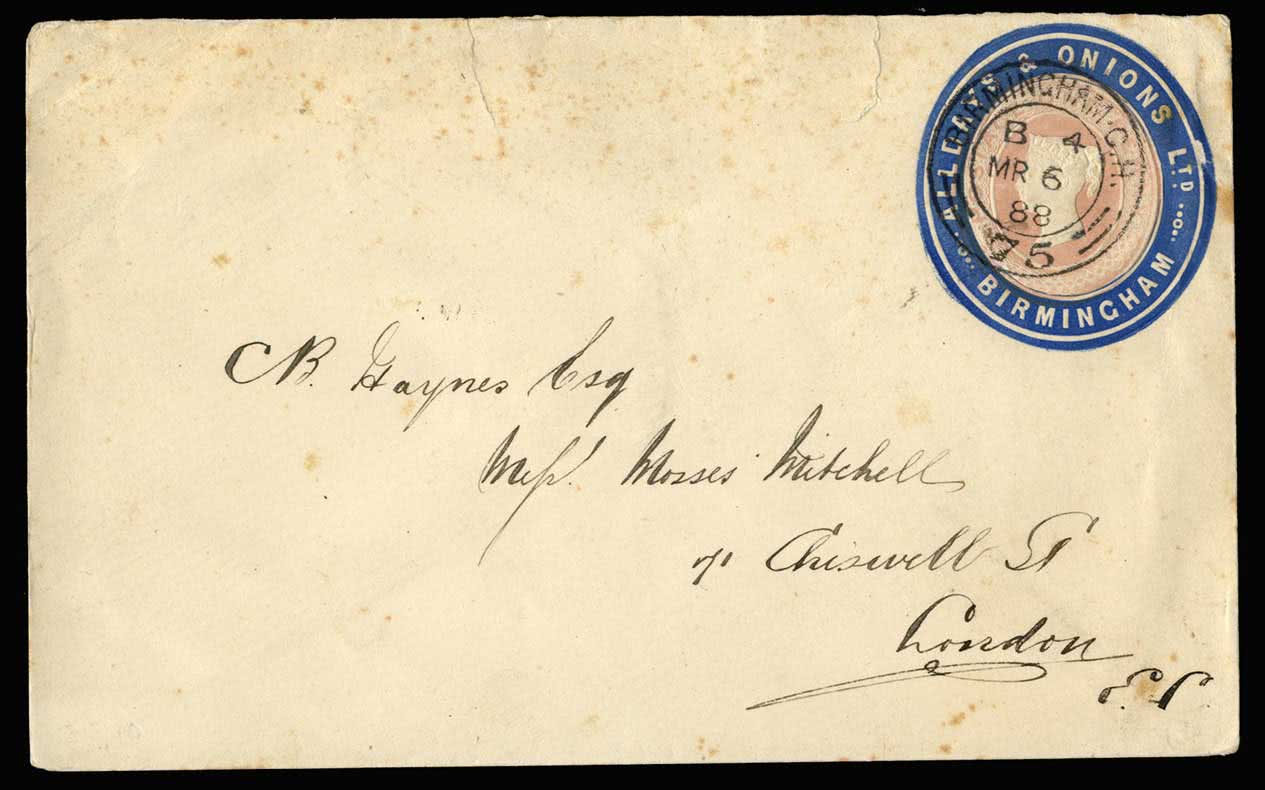 ALLDAYS & ONIONS LTD
BIRMINGHAM
BIRMINGHAM. C.H.
B 4
MR 6
88
75
C B. Haynes Esq
Mess<sup>rs</sup> Mosses Mitchell
Chiswell St
London
E.C.